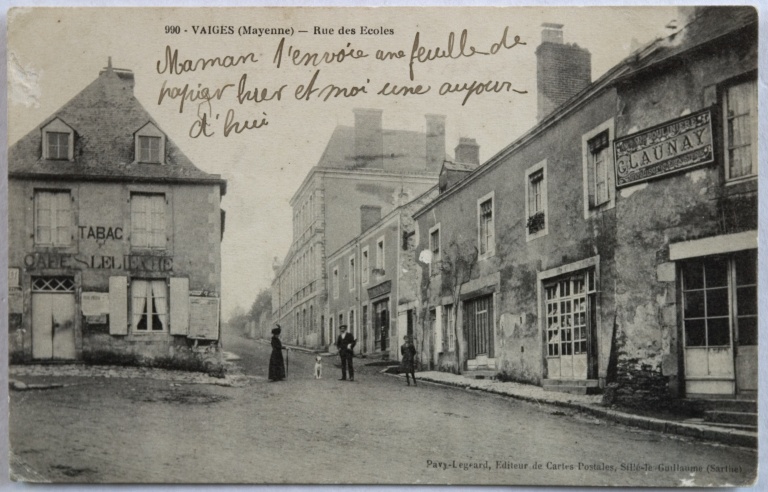 990 - VAIGES (Mayenne) — Rue des Ecoles
Maman l'envoie une feuille de
papier hier et moi une aujour-
d'hui
TABAC
CAFE
G. LAUNAY
Pavy-Legeard, Editeur de Cartes Postales, Sillé-le-Guillaume (Sarthe)